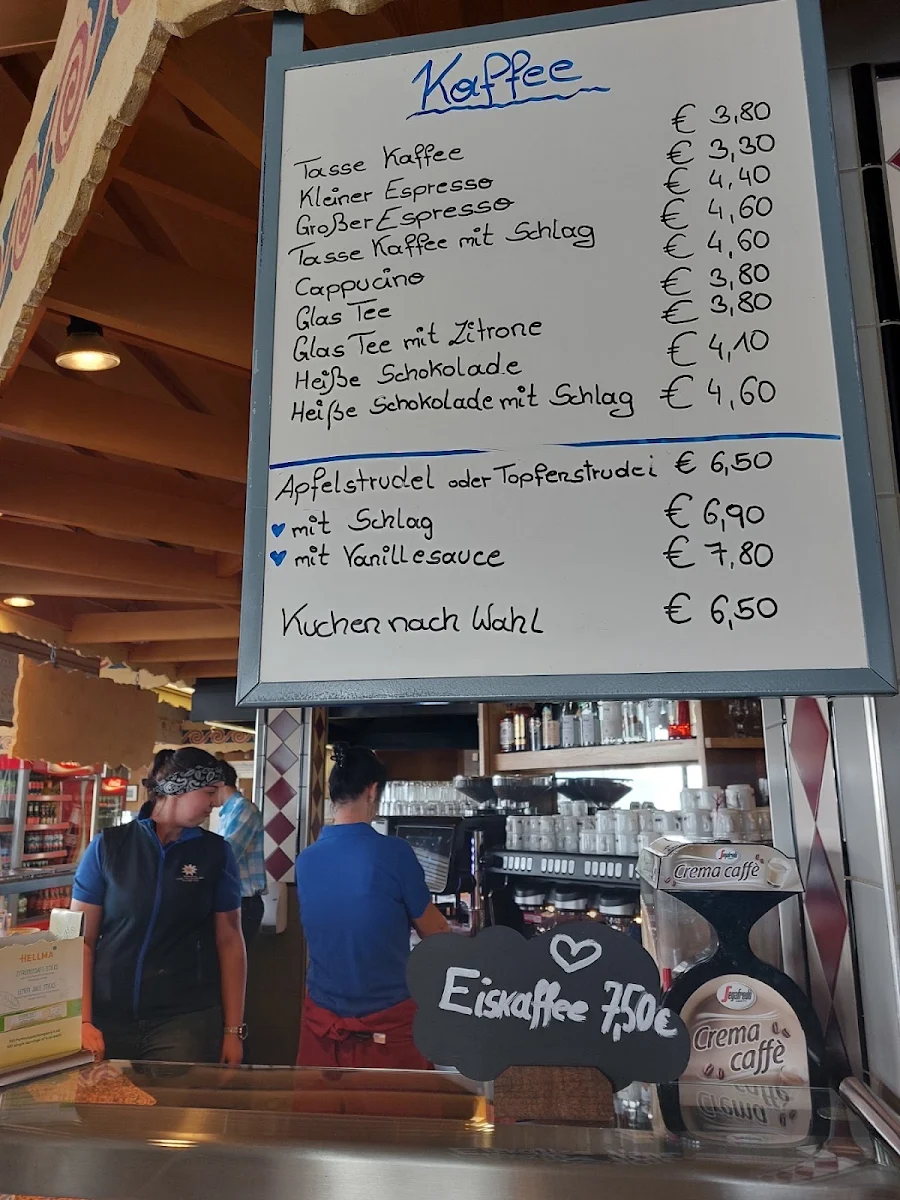 Kaffee
Tasse Kaffee € 3,80
Kleiner Espresso € 3,30
Großer Espresso € 4,40
Tasse Kaffee mit Schlag € 4,60
Cappucino € 4,60
Glas Tee € 3,80
Glas Tee mit Zitrone € 3,80
Heiße Schokolade € 4,10
Heiße Schokolade mit Schlag € 4,60
Apfelstrudel oder Topfenstrudel € 6,50
mit Schlag € 6,90
mit Vanillesauce € 7,80
Kuchen nach Wahl € 6,50
Segafredo
Crema caffè
HELLMA
Eiskaffee 7,50€
Segafredo
Crema
caffè